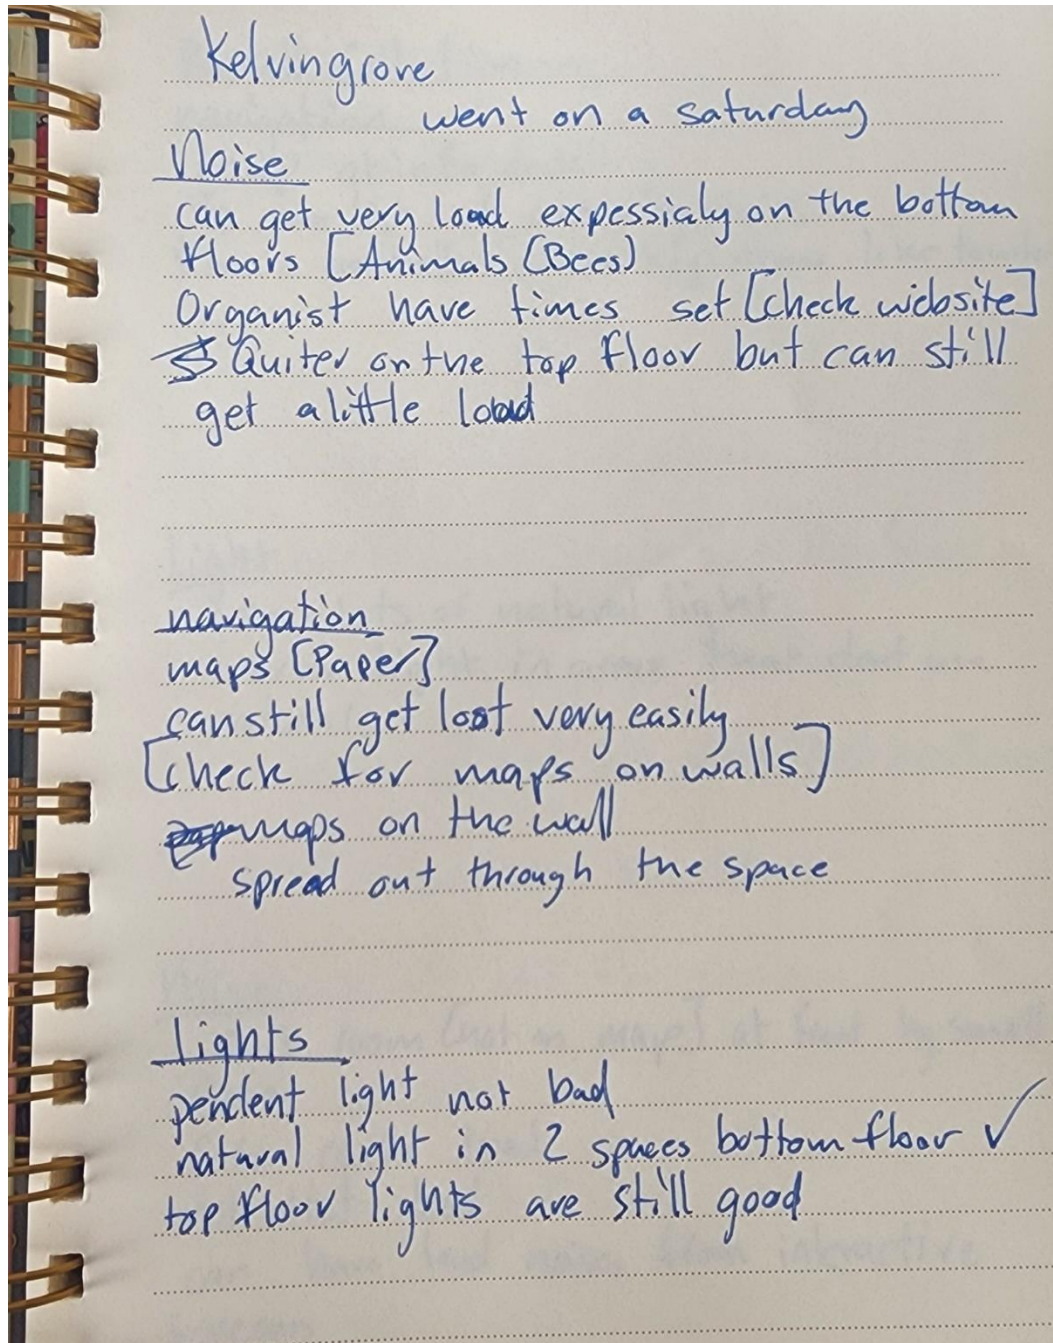 Kelvingrove
went on a saturday
Noise
can get very load expessialy on the bottom
floors [Animals (Bees)
Organist have times set [check website]
Quiter on the top floor but can still
get a little load
navigation
maps [Paper]
can still get lost very easily
[check for maps on walls]
maps on the wall
spread out through the space
lights
pendent light not bad
natural light in 2 spaces bottom floor ✓
top floor lights are still good